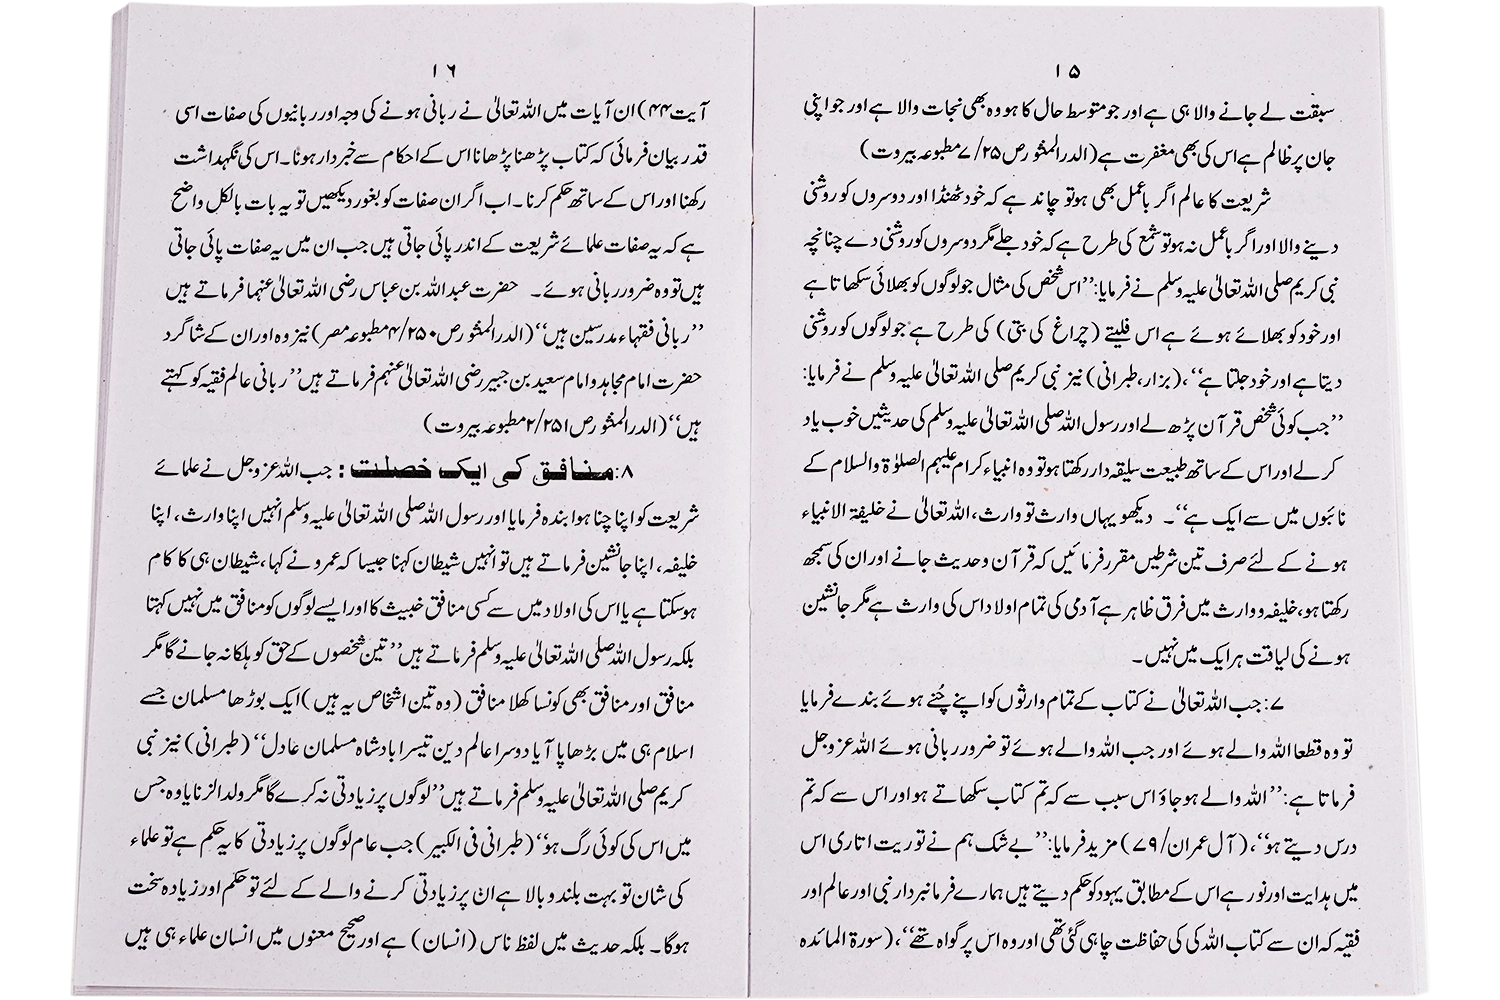 ۱۵
سبقت لے جانے والا ہی ہے اور جو متوسط حال کا ہو وہ بھی نجات والا ہے اور جو اپنی
جان پر ظالم ہے اس کی بھی مغفرت ہے (الدر المنثور ص ۷/۲۵ مطبوعہ بیروت)
شریعت کا عالم اگر باعمل بھی ہو تو چاند ہے کہ خود ٹھنڈا اور دوسروں کو روشنی
دینے والا اور اگر باعمل نہ ہو تو شمع کی طرح ہے کہ خود جلے مگر دوسروں کو روشنی دے چنانچہ
نبی کریم صلی اللہ تعالیٰ علیہ وسلم نے فرمایا: ’’اس شخص کی مثال جو لوگوں کو بھلائی سکھاتا ہے
اور خود کو بھلائے ہوئے ہے اس فلیتے (چراغ کی بتی) کی طرح ہے جو لوگوں کو روشنی
دیتا ہے اور خود جلتا ہے‘‘، (بزار، طبرانی) نیز نبی کریم صلی اللہ تعالیٰ علیہ وسلم نے فرمایا:
’’جب کوئی شخص قرآن پڑھ لے اور رسول اللہ صلی اللہ تعالیٰ علیہ وسلم کی حدیثیں خوب یاد
کر لے اور اس کے ساتھ طبیعت سلیقہ دار رکھتا ہو تو وہ انبیاء کرام علیہم الصلوٰۃ والسلام کے
نائبوں میں سے ایک ہے‘‘۔ دیکھو یہاں وارث تو وارث، اللہ تعالیٰ نے خلیفۃ الانبیاء
ہونے کے لئے صرف تین شرطیں مقرر فرمائیں کہ قرآن و حدیث جانے اور ان کی سمجھ
رکھتا ہو، خلیفہ و وارث میں فرق ظاہر ہے آدمی کی تمام اولاد اس کی وارث ہے مگر جانشین
ہونے کی لیاقت ہر ایک میں نہیں۔
۷: جب اللہ تعالیٰ نے کتاب کے تمام وارثوں کو اپنے چُنے ہوئے بندے فرمایا
تو وہ قطعا اللہ والے ہوئے اور جب اللہ والے ہوئے تو ضرور ربانی ہوئے اللہ عزوجل
فرماتا ہے: ’’اللہ والے ہو جاؤ اس سبب سے کہ تم کتاب سکھاتے ہو اور اس سے کہ تم
درس دیتے ہو‘‘، (آل عمران/۷۹) مزید فرمایا: ’’بے شک ہم نے توریت اتاری اس
میں ہدایت اور نور ہے اس کے مطابق یہود کو حکم دیتے ہیں ہمارے فرمانبردار نبی اور عالم اور
فقیہ کہ ان سے کتاب اللہ کی کی حفاظت چاہی گئی تھی اور وہ اس پر گواہ تھے‘‘، (سورۃ المائدہ
۱۶
آیت ۴۴) ان آیات میں اللہ تعالیٰ نے ربانی ہونے کی وجہ اور ربانیوں کی صفات اسی
قدر بیان فرمائی کہ کتاب پڑھنا پڑھانا اس کے احکام سے خبردار ہونا۔ اس کی نگہداشت
رکھنا اور اس کے ساتھ حکم کرنا۔ اب اگر ان صفات کو بغور دیکھیں تو یہ بات بالکل واضح
ہے کہ یہ صفات علمائے شریعت کے اندر پائی جاتی ہیں جب ان میں یہ صفات پائی جاتی
ہیں تو وہ ضرور ربانی ہوئے۔ حضرت عبد اللہ بن عباس رضی اللہ تعالیٰ عنہما فرماتے ہیں
’’ربانی فقہاء مدرسین ہیں‘‘ (الدر المنثور ص ۴/۲۵۰ مطبوعہ مصر) نیز وہ اور ان کے شاگرد
حضرت امام مجاہد و امام سعید بن جبیر رضی اللہ تعالیٰ عنہم فرماتے ہیں ’’ربانی عالم فقیہ کو کہتے
ہیں‘‘ (الدر المنثور ص ۲/۲۵۱ مطبوعہ بیروت)
۸: منافق کی ایک خصلت: جب اللہ عزوجل نے علمائے
شریعت کو اپنا چنا ہوا بندہ فرمایا اور رسول اللہ صلی اللہ تعالیٰ علیہ وسلم انہیں اپنا وارث، اپنا
خلیفہ، اپنا جانشین فرماتے ہیں تو انہیں شیطان کہنا جیسا کہ عمرو نے کہا، شیطان ہی کا کام
ہو سکتا ہے یا اس کی اولاد میں سے کسی منافق خبیث کا اور ایسے لوگوں کو منافق میں نہیں کہتا
بلکہ رسول اللہ صلی اللہ تعالیٰ علیہ وسلم فرماتے ہیں ’’تین شخصوں کے حق کو ہلکا نہ جانے گا مگر
منافق اور منافق بھی کونسا کھلا منافق (وہ تین اشخاص یہ ہیں) ایک بوڑھا مسلمان جسے
اسلام ہی میں بڑھاپا آیا دوسرا عالم دین تیسرا بادشاہ مسلمان عادل‘‘ (طبرانی) نیز نبی
کریم صلی اللہ تعالیٰ علیہ وسلم فرماتے ہیں ’’لوگوں پر زیادتی نہ کرے گا مگر ولد الزنا یا وہ جس
میں اس کی کوئی رگ ہو‘‘ (طبرانی فی الکبیر) جب عام لوگوں پر زیادتی کا یہ حکم ہے تو علماء
کی شان تو بہت بلند و بالا ہے ان پر زیادتی کرنے والے کے لئے تو حکم اور زیادہ سخت
ہوگا۔ بلکہ حدیث میں لفظ ناس (انسان) ہے اور صحیح معنوں میں انسان علماء ہی ہیں